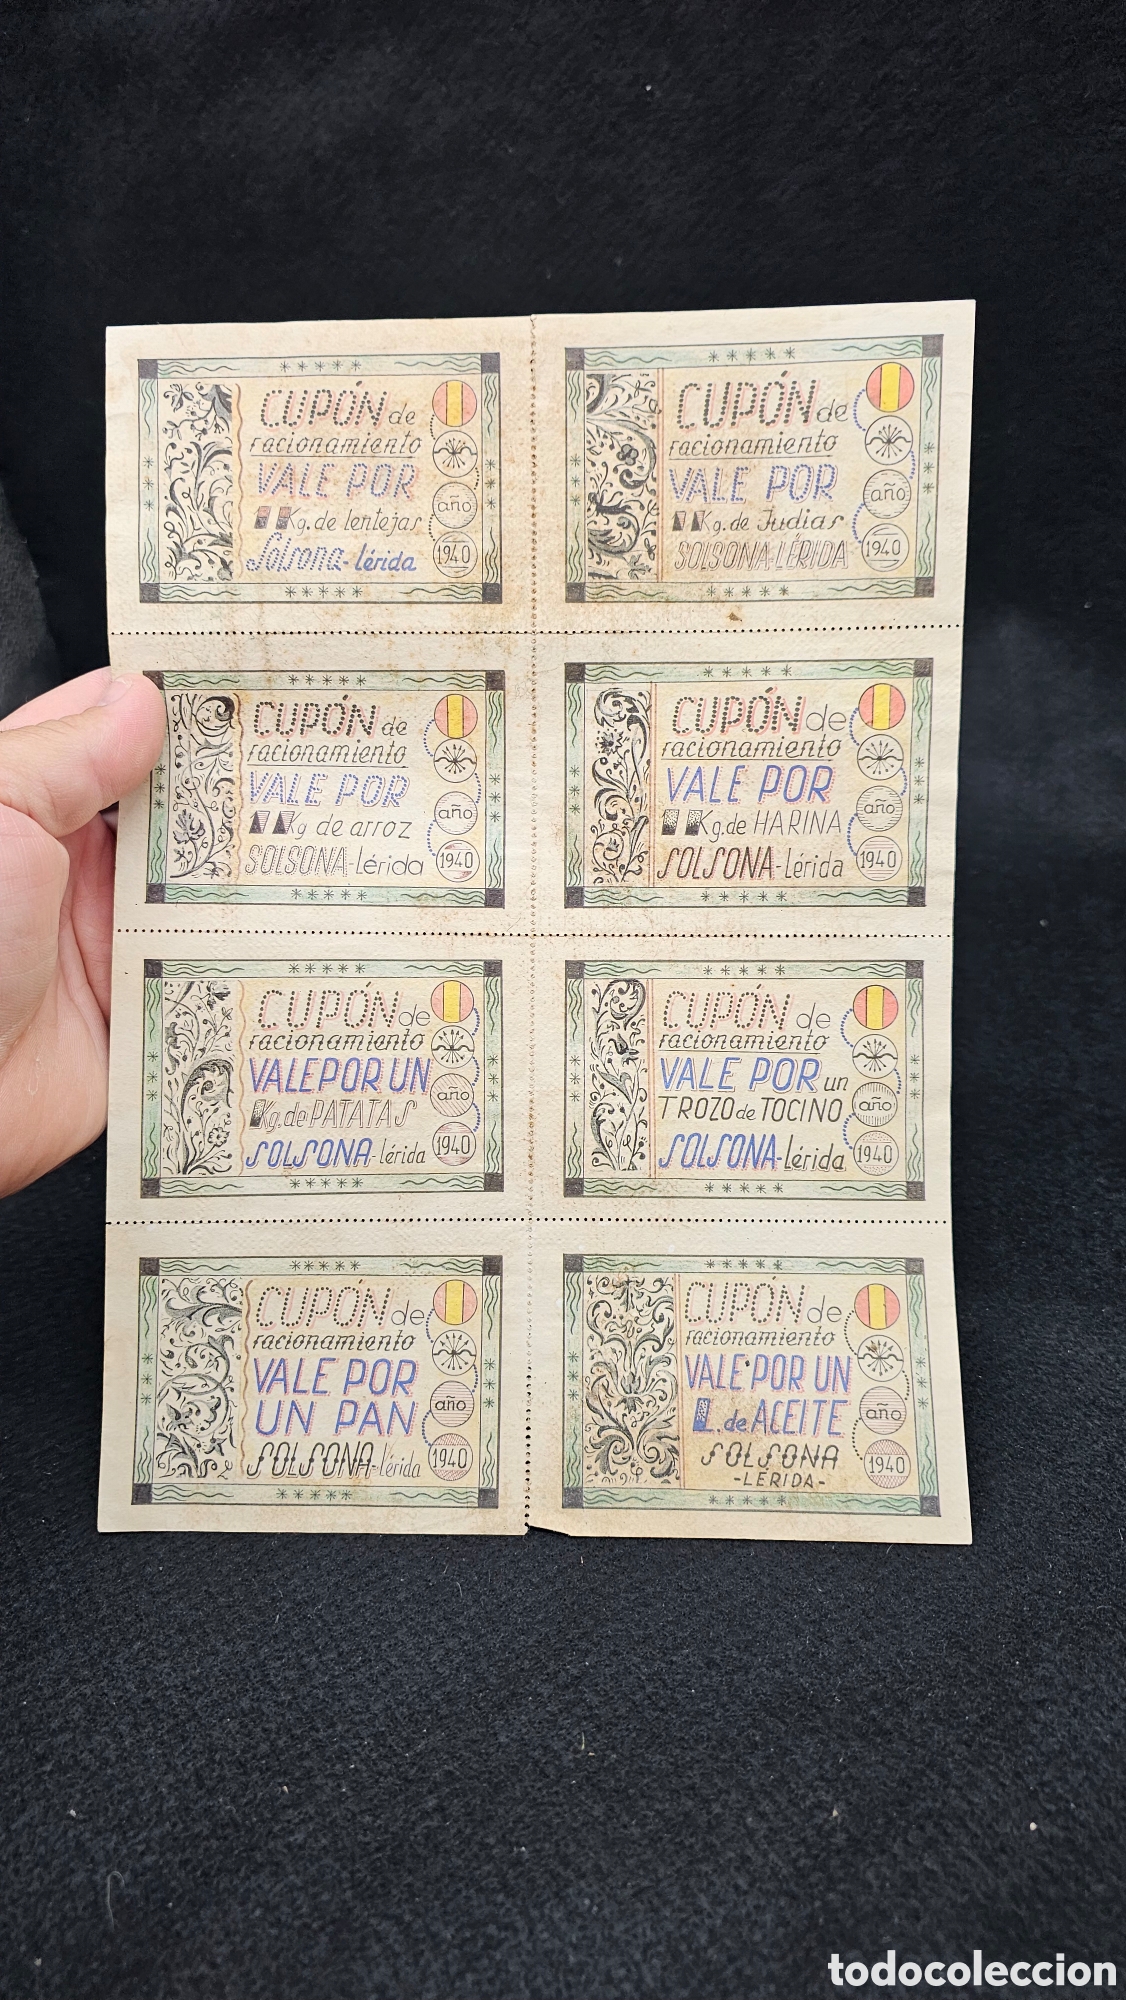 CUPÓN de
racionamiento
VALE POR
Kg. de lentejas
Solsona - lérida
año
1940
CUPÓN de
racionamiento
VALE POR
Kg. de Judias
SOLSONA-LÉRIDA
año
1940
CUPÓN de
racionamiento
VALE POR
Kg de arroz
SOLSONA-lérida
año
1940
CUPÓN de
racionamiento
VALE POR
Kg. de HARINA
SOLSONA-lérida
año
1940
CUPÓN de
racionamiento
VALE POR UN
Kg. de PATATAS
SOLSONA-lérida
año
1940
CUPÓN de
racionamiento
VALE POR un
TROZO de TOCINO
SOLSONA-lérida
año
1940
CUPÓN de
racionamiento
VALE POR
UN PAN
SOLSONA-lérida
año
1940
CUPÓN de
racionamiento
VALE POR UN
L. de ACEITE
SOLSONA
-LÉRIDA-
año
1940
todocoleccion